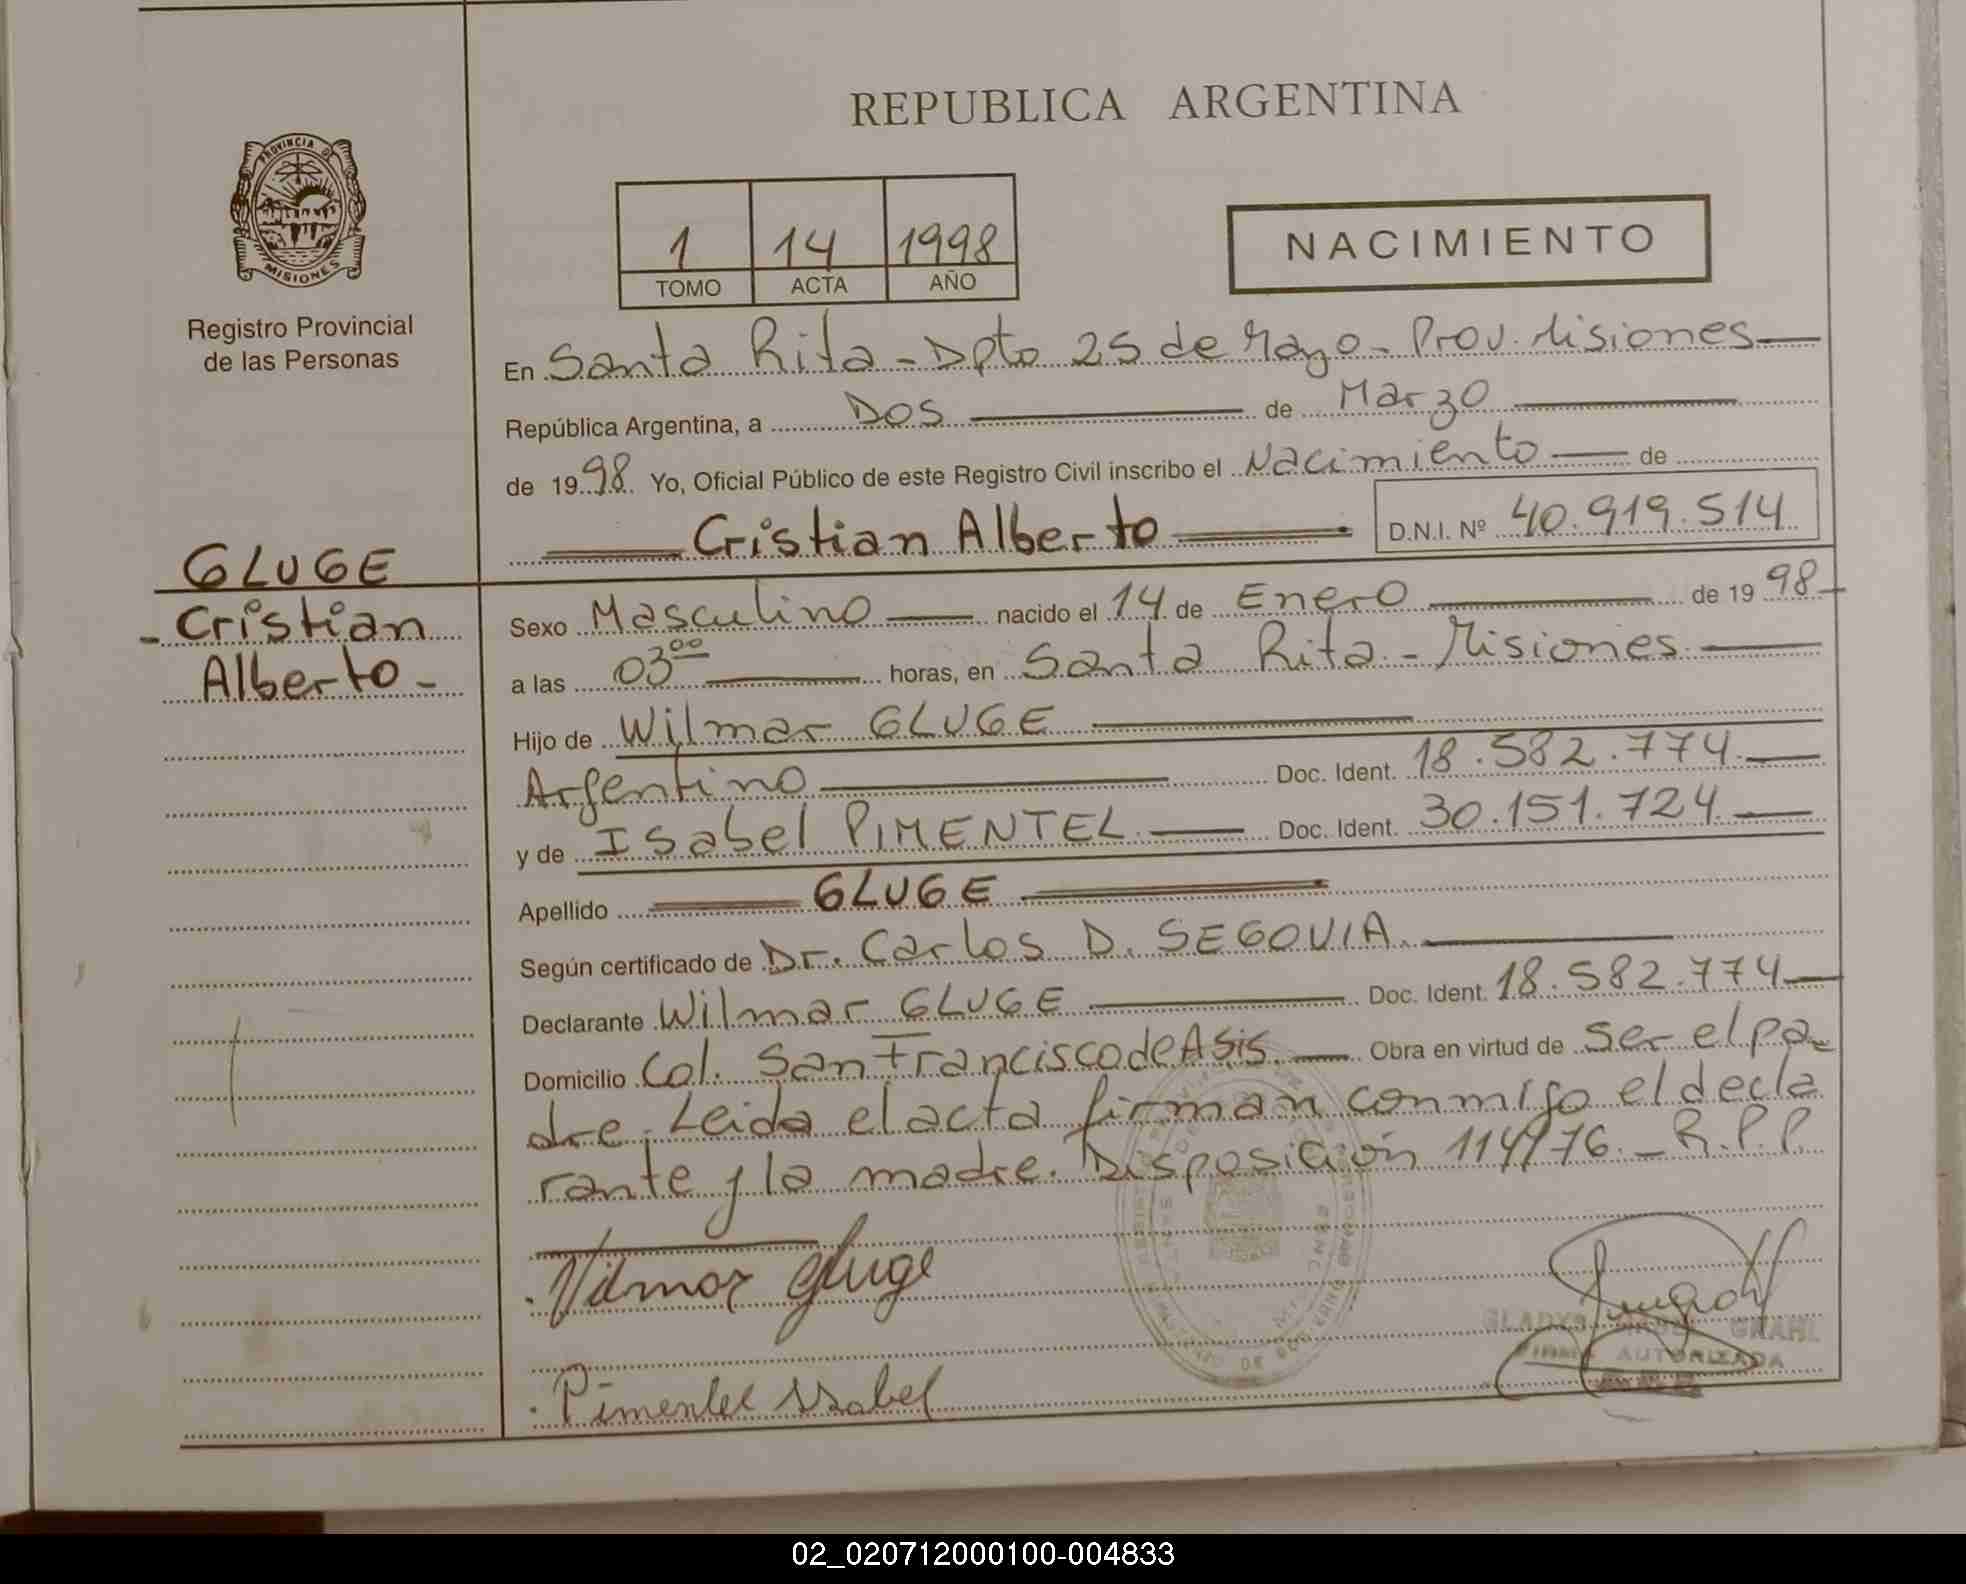 REPUBLICA ARGENTINA
PROVINCIA DE
MISIONES
Registro Provincial
de las Personas
1 14 1998
TOMO ACTA AÑO
NACIMIENTO
En Santa Rita - Dpto 25 de Mayo - Prov. Misiones
República Argentina, a Dos de Marzo
de 1998 Yo, Oficial Público de este Registro Civil inscribo el Nacimiento de
Cristian Alberto D.N.I. Nº 40.919.514
GLUGE
Cristian
Alberto
Sexo Masculino nacido el 14 de Enero de 1998
a las 03 00 horas, en Santa Rita - Misiones
Hijo de Wilmar GLUGE
Argentino Doc. Ident. 18.582.774
y de Isabel PIMENTEL Doc. Ident. 30.151.724
Apellido GLUGE
Según certificado de Dr. Carlos D. SEGOVIA
Declarante Wilmar GLUGE Doc. Ident. 18.582.774
Domicilio Col. San Francisco de Asis Obra en virtud de ser el pa-
dre. Leida el acta firman conmigo el decla
rante y la madre. Disposición 114/76 - R.P.P.
Vilmar Gluge
GLADYS GRAHL
FIRMA AUTORIZADA
Pimentel Isabel
02_020712000100-004833